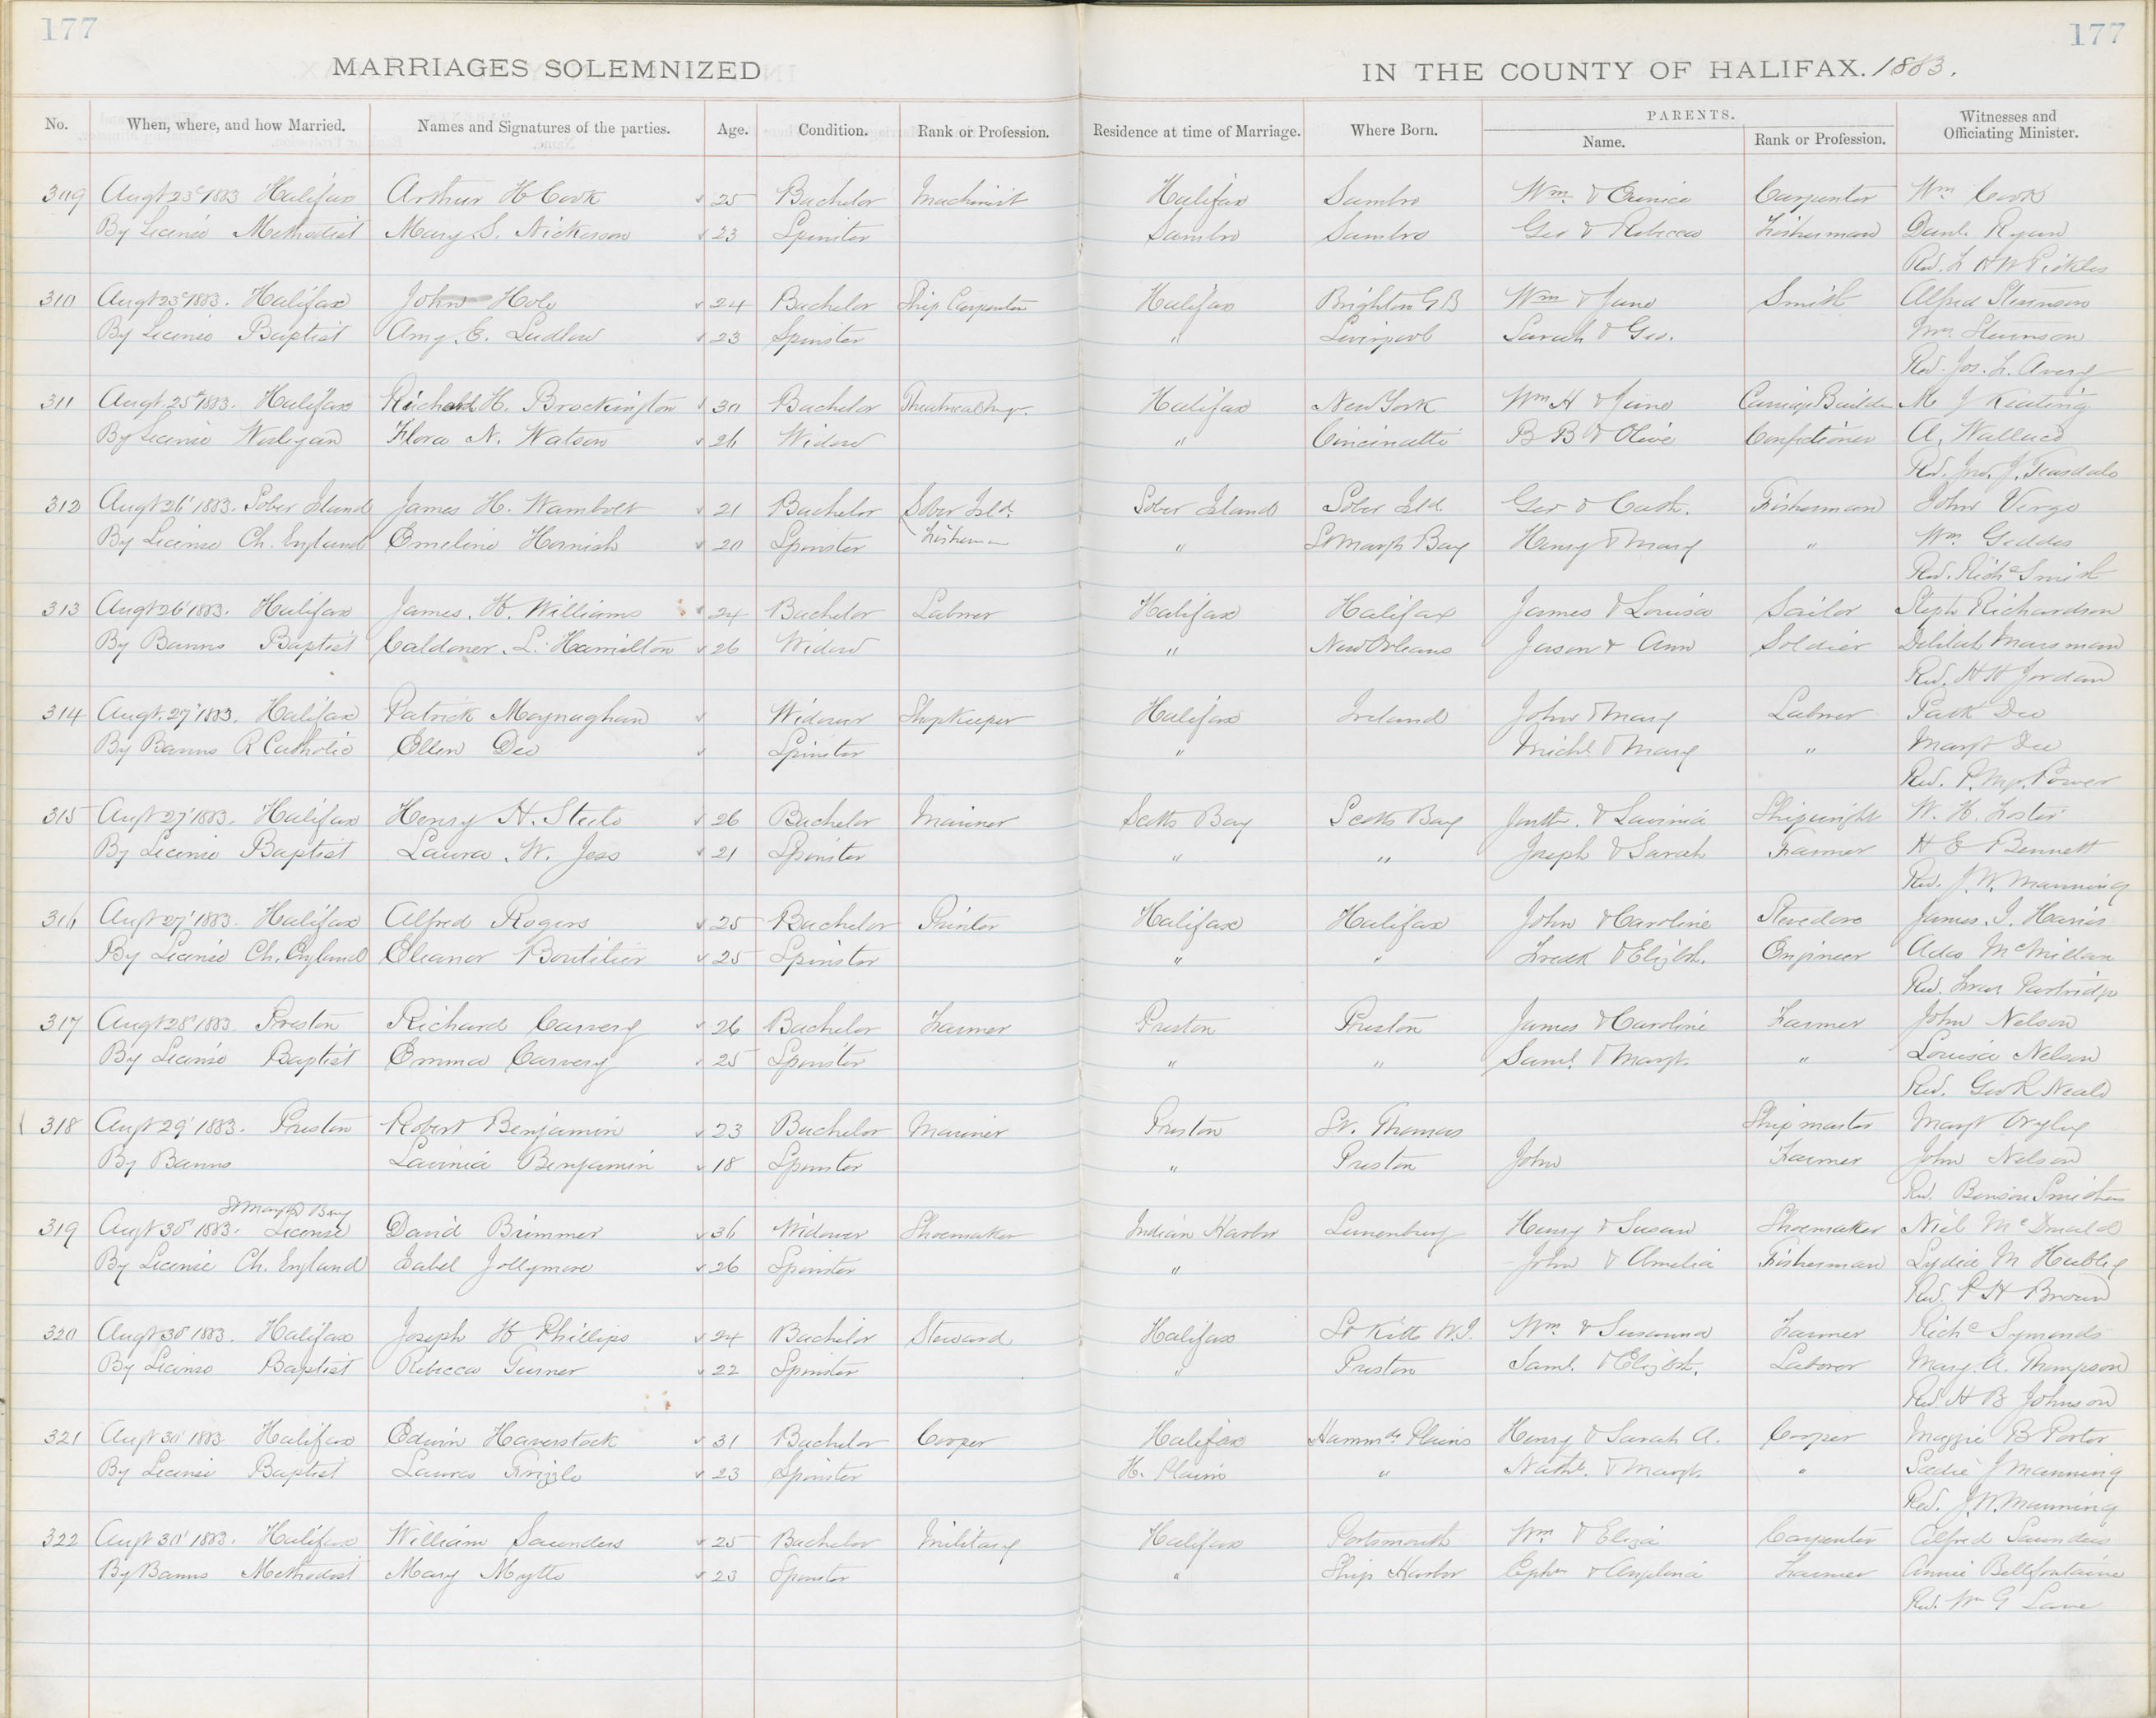 177
177
MARRIAGES SOLEMNIZED IN THE COUNTY OF HALIFAX. 1883.
No. When, where, and how Married. Names and Signatures of the parties. Age. Condition. Rank or Profession. Residence at time of Marriage. Where Born. PARENTS. Name. Rank or Profession. Witnesses and Officiating Minister.
309 Augt 23d 1883 Halifax Arthur H Cook 25 Bachelor Machinist Halifax Sambro Wm & Eunice Carpenter Wm Cook
By License Methodist Mary S. Nickerson 23 Spinster Sambro Sambro Geo & Rebecca Fisherman Danl. Ryan
Rev. F H W Pickles
310 Augt 23d 1883. Halifax John Hole 24 Bachelor Ship Carpenter Halifax Brighton G B Wm & Jane Smith Alfred
By License Baptist Amy. E. Ludlow 23 Spinster " Liverpool Sarah & Geo. Wm.
Rev. Jos. L. Avery
311 Augt 25th 1883. Halifax Richard H. Brockington 30 Bachelor Halifax New York Wm H & Jane Carriage Builder M J Keating
By License Wesleyan Flora N. Watson 26 Widow " Cincinatti B B & Olive Confectioner A. Wallace
Rev. Jno. J. Teasdale
312 Augt 26' 1883. Sober Island James H. Wambolt 21 Bachelor Sober Isld. Sober Island Sober Isld. Geo & Cath. Fisherman John Verge
By License Ch. England Emeline Hornish 20 Spinster Fisherman " St Margts Bay Henry & Mary " Wm. Geddes
Rev. Richd Smith
313 Augt 26' 1883. Halifax James. H. Williams 24 Bachelor Labrer Halifax Halifax James & Louisa Sailor Steph Richardson
By Banns Baptist Caldoner. L. Hamilton 26 Widow " New Orleans Jason & Ann Soldier Delilah
Rev. H H Jordan
314 Augt. 27' 1883. Halifax Patrick Moynaghan Widower Shopkeeper Halifax Ireland John & Mary Labrer Patk Dee
By Banns R Catholic Ellen Dee Spinster " Michl & Mary " Margt Dee
Rev. P. Power
315 Augt 27' 1883. Halifax Henry H. Steele 26 Bachelor Mariner Scotts Bay Scotts Bay & Lavinia Shipwright W. H. Foster
By License Baptist Laura. W. Jess 21 Spinster " " Joseph & Sarah Farmer H E Bennett
Rev. J. W. Manning
316 Augt 27' 1883. Halifax Alfred Rogers 25 Bachelor Printer Halifax Halifax John & Caroline Stevedore James. J. Harris
By License Ch. England Eleanor Boutilier 25 Spinster " " Fredk & Elizbh. Engineer Ada McMillan
Rev. Partridge
317 Augt 28' 1883 Preston Richard Carvery 26 Bachelor Farmer Preston Preston James & Caroline Farmer John Nelson
By License Baptist Emma Carvery 25 Spinster " " Saml. & Margt. " Louisa Nelson
Rev. Geo R Neald
318 Augt 29' 1883. Preston Robert Benjamin 23 Bachelor Mariner Preston St. Thomas Shipmaster Margt
By Banns Lavinia Benjamin 18 Spinster " Preston John Farmer John Nelson
Rev. Benson Smithers
St Margts Bay
319 Augt 30' 1883. License David Brimmer 36 Widower Shoemaker Indian Harbor Lunenburg Henry & Susan Shoemaker Niel McDonald
By License Ch. England Isabel Jollymore 26 Spinster " John & Amelia Fisherman Lydia M Hubley
Rev. P H Brown
320 Augt 30' 1883. Halifax Joseph H Phillips 24 Bachelor Steward Halifax St Kitts W.I. Wm & Susanna Farmer Richd Symonds
By License Baptist Rebecca Turner 22 Spinster " Preston Saml. & Elizbh. Laborer Mary. A. Thompson
Rev. H B Johnson
321 Augt 30' 1883 Halifax Edwin Haverstock 31 Bachelor Cooper Halifax Hammds Plains Henry & Sarah A. Cooper Maggie B Porter
By License Baptist Laura Frizzle 23 Spinster H. Plains " Nathl. & Margt. " Sadie J Manning
Rev. J. W. Manning
322 Augt 30' 1883. Halifax William Saunders 25 Bachelor Military Halifax Portsmouth Wm & Eliza Carpenter Alfred Saunders
By Banns Methodist Mary Mytts 23 Spinster " Ship Harbor Ephm & Anglina Farmer Annie Bellefontaine
Rev. Wm G Lane